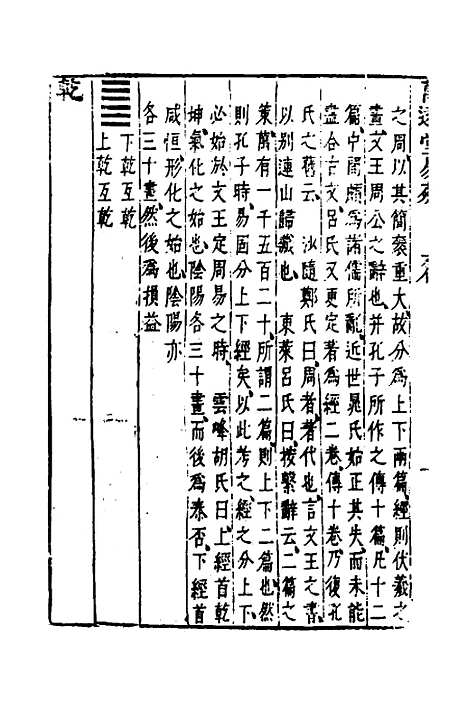 之周以其簡袠重大故分爲上下兩篇經則伏羲之
畫文王周公之辭也并孔子所作之傳十篇凡十二
篇中間頗爲諸儒所亂近世晁氏始正其失而未能
盡合古文呂氏又更定著爲經二卷傳十卷乃復孔
氏之舊云　沙隨鄭氏曰周者著代也言文王之書
以别連山歸藏也　東萊呂氏曰按繫辭云二篇之
策萬有一千五百二十所謂二篇則上下二篇也然
則孔子時易固分上下經矣以此考之經之分上下
必始於文王定周易之時　雲峰胡氏曰上經首乾
坤氣化之始也陰陽各三十畫而後爲泰否下經首
咸恒形化之始也陰陽亦
各三十畫然後爲損益
下乾互乾
上乾互乾
乾